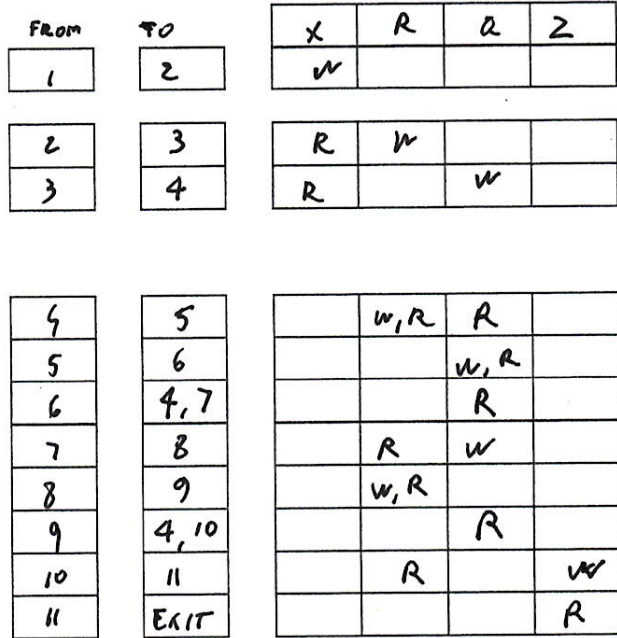 FROM TO X R Q Z
1 2 W
2 3 R W
3 4 R W
4 5 W,R R
5 6 W,R
6 4,7 R
7 8 R W
8 9 W,R
9 4,10 R
10 11 R W
11 EXIT R